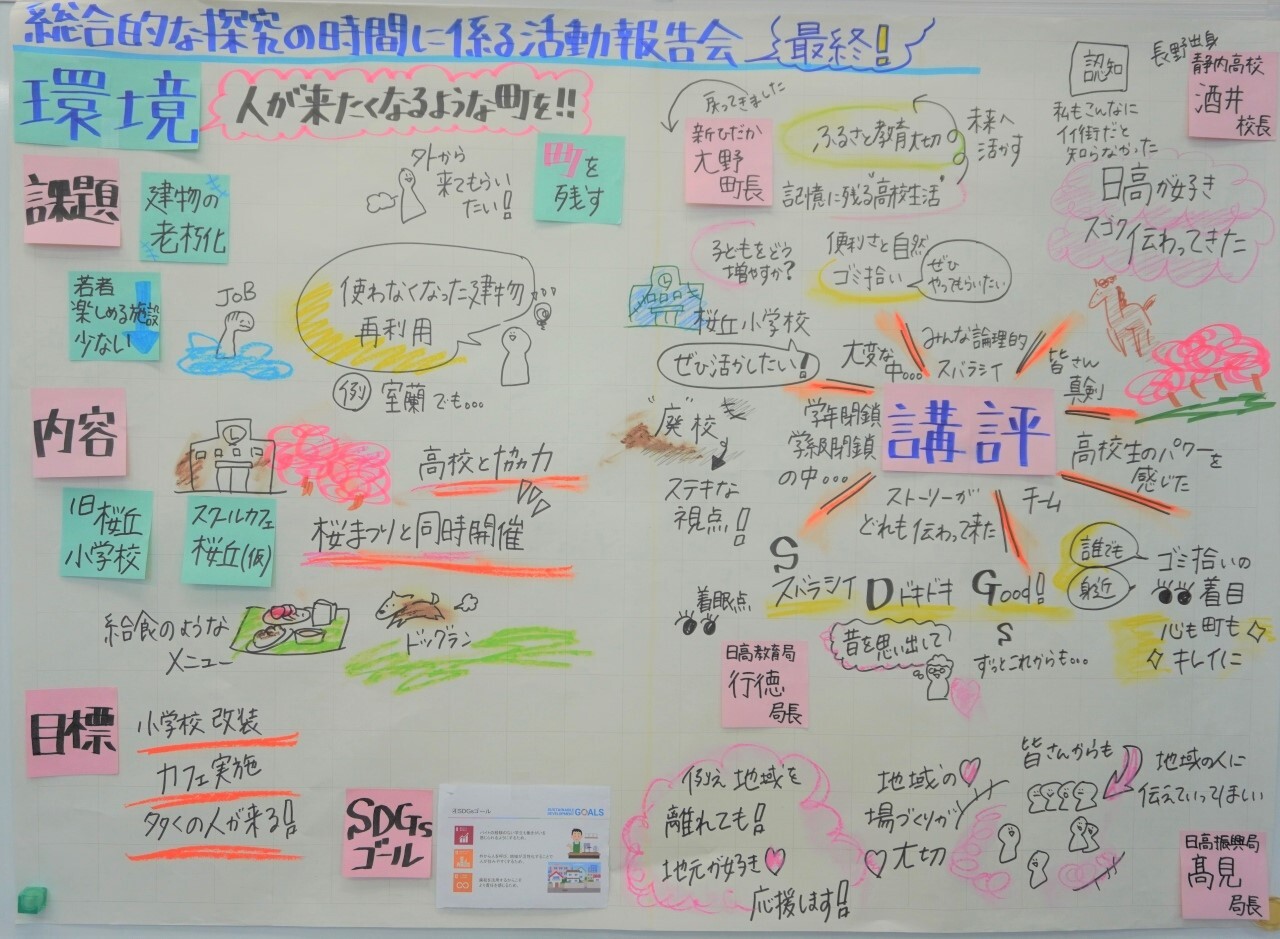 総合的な探究の時間に係る活動報告会
最終!
環境
人が来たくなるような町を!!
課題
建物の
老朽化
外から
来てもらい
たい!
町を
残す
若者
楽しめる施設
少ない
JOB
使わなくなった建物
再利用
例
室蘭でも…
内容
高校と協力
旧桜丘
小学校
スクールカフェ
桜丘(仮)
桜まつりと同時開催
給食のような
メニュー
ドッグラン
目標
小学校改装
カフェ実施
多くの人が来る!!
SDGs
ゴール
SDGsゴール
SUSTAINABLE
DEVELOPMENT GOALS
戻ってきました
新ひだか
大野
町長
ふるさと教育大切
未来へ
活かす
記憶に残る"高校生活"
子どもをどう
増やすか?
便利さと自然
ゴミ拾い
ぜひ
やってもらいたい
桜丘小学校
ぜひ活かしたい!
"廃校"
ステキな
視点!!
認知
長野出身
静内高校
酒井
校長
私もこんなに
イイ街だと
知らなかった
日高が好き
スゴク伝わってきた
講評
大変な
中…
みんな論理的
スバラシイ
皆さん
真剣
学年閉鎖
学級閉鎖
の中…
高校生のパワーを
感じた
ストーリーが
どれも伝わって来た
チーム
S
スバラシイ
D ドキドキ
Good!
S
ずっとこれからも…
誰でも
身近
ゴミ拾いの
着目
心も町も
キレイに
着眼点
昔を思い出して
日高教育局
行徳
局長
例え地域を
離れても!!
地元が好き
応援します!!
地域の
場づくりが
大切
皆さんからも
地域の人に
伝えていってほしい
日高振興局
髙見
局長